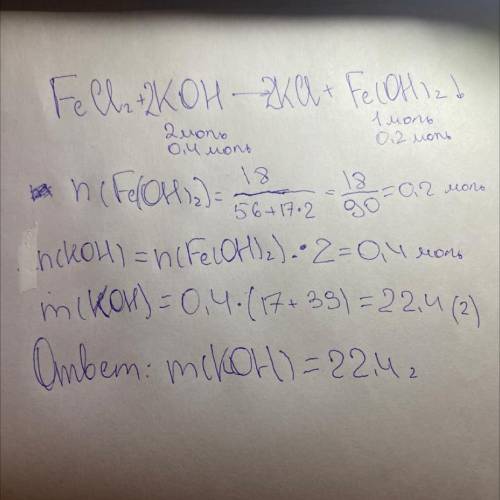 FeCl₂+2KOH → 2KCl + Fe(OH)₂↓
2моль 1моль
0,4моль 0,2моль
n(Fe(OH)₂) = 18/(56+17·2) = 18/90 = 0,2 моль
n(KOH) = n(Fe(OH)₂)·2 = 0,4 моль
m(KOH) = 0,4·(17+39) = 22,4 (г)
Ответ: m(KOH) = 22,4 г